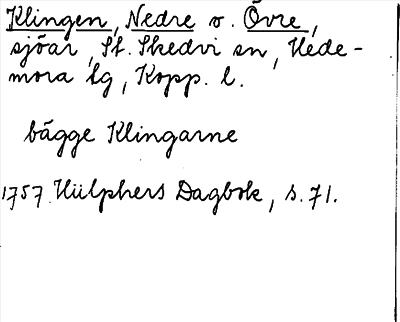 Klingen, Nedre o. Övre,
sjöar, St. Skedvi sn, Hede-
mora lg, Kopp. l.
bägge Klingarne
1757 Hülphers Dagbok, s. 71.